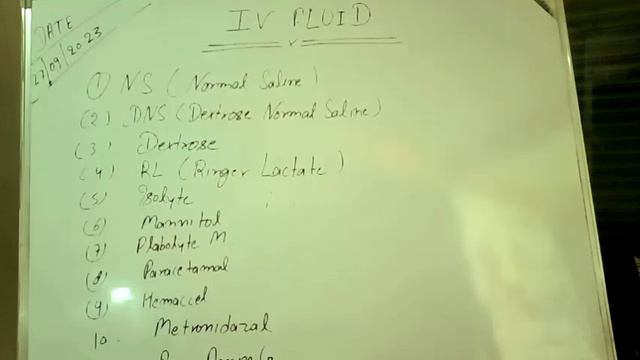 DATE
27/09/2023
IV FLUID
(1) NS (Normal Saline)
(2) DNS (Dextrose Normal Saline)
(3) Dextrose
(4) RL (Ringer Lactate)
(5) Isolyte
(6) Mannitol
(7) Plabolyte M
(8) Paracetamal
(9) Hemaccel
10. Metronidazal